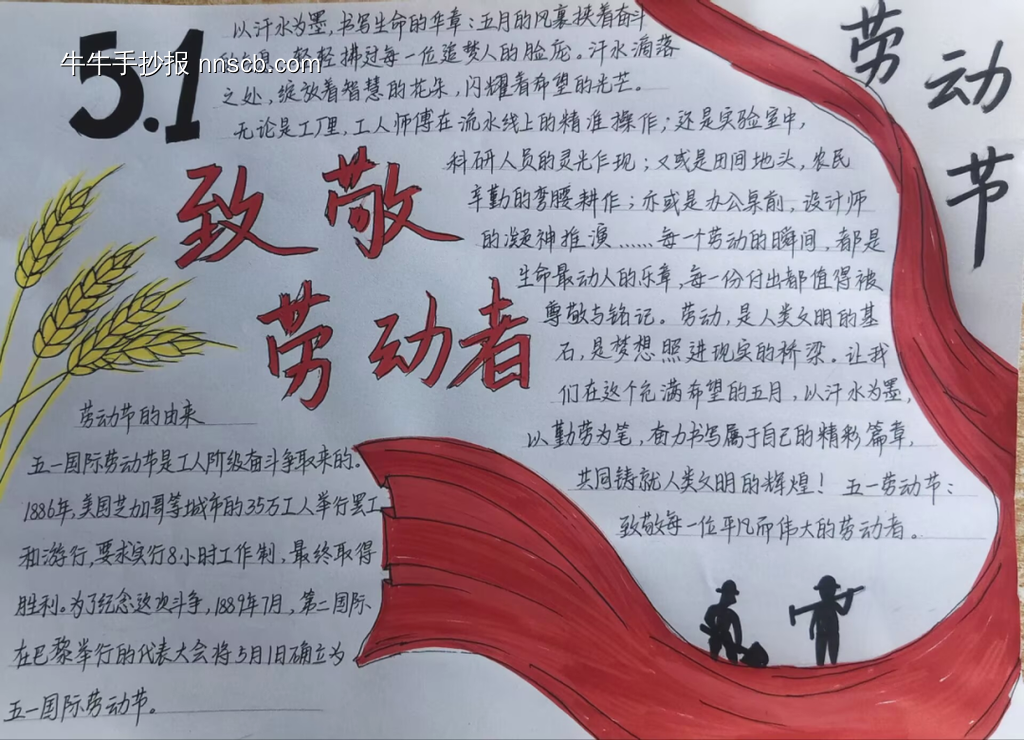 牛牛手抄报 nnscb.com
5.1
劳动节
致敬
劳动者
以汗水为墨,书写生命的华章:五月的风裹挟着奋斗
轻轻拂过每一位追梦人的脸庞。汗水滴落
之处,绽放着智慧的花朵,闪耀着希望的光芒。
无论是工厂里,工人师傅在流水线上的精准操作;还是实验室中,
科研人员的灵光乍现;又或是田间地头,农民
辛勤的弯腰耕作;亦或是办公桌前,设计师
的凝神推演……每一个劳动的瞬间,都是
生命最动人的乐章,每一份付出都值得被
尊敬与铭记。劳动,是人类文明的基
石,是梦想照进现实的桥梁。让我
们在这个充满希望的五月,以汗水为墨,
以勤劳为笔,奋力书写属于自己的精彩篇章,
共同铸就人类文明的辉煌!五一劳动节:
致敬每一位平凡而伟大的劳动者。
劳动节的由来
五一国际劳动节是工人阶级奋斗争取来的。
1886年,美国芝加哥等城市的35万工人举行罢工
和游行,要求实行8小时工作制,最终取得
胜利。为了纪念这次斗争,1889年7月,第二国际
在巴黎举行的代表大会将5月1日确立为
五一国际劳动节。